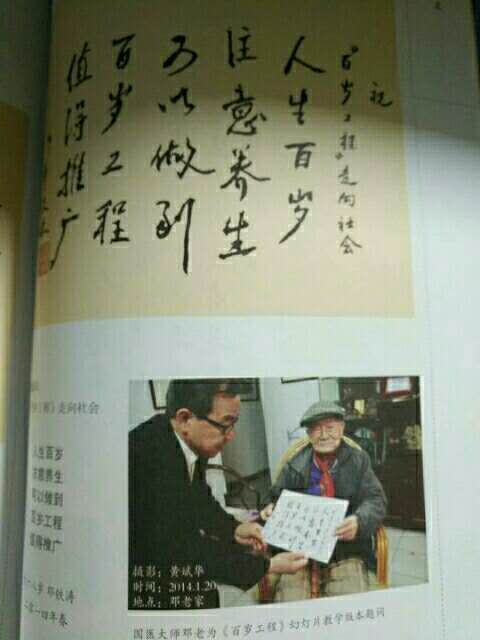 祝
“百岁工程”走向社会
人生百岁
注意养生
可以做到
百岁工程
值得推广
走向社会
人生百岁
注意养生
可以做到
百岁工程
值得推广
八岁 邓铁涛
二〇一四年春
摄影：黄斌华
时间：2014.1.20
地点：邓老家
国医大师邓老为《百岁工程》幻灯片教学版本题词